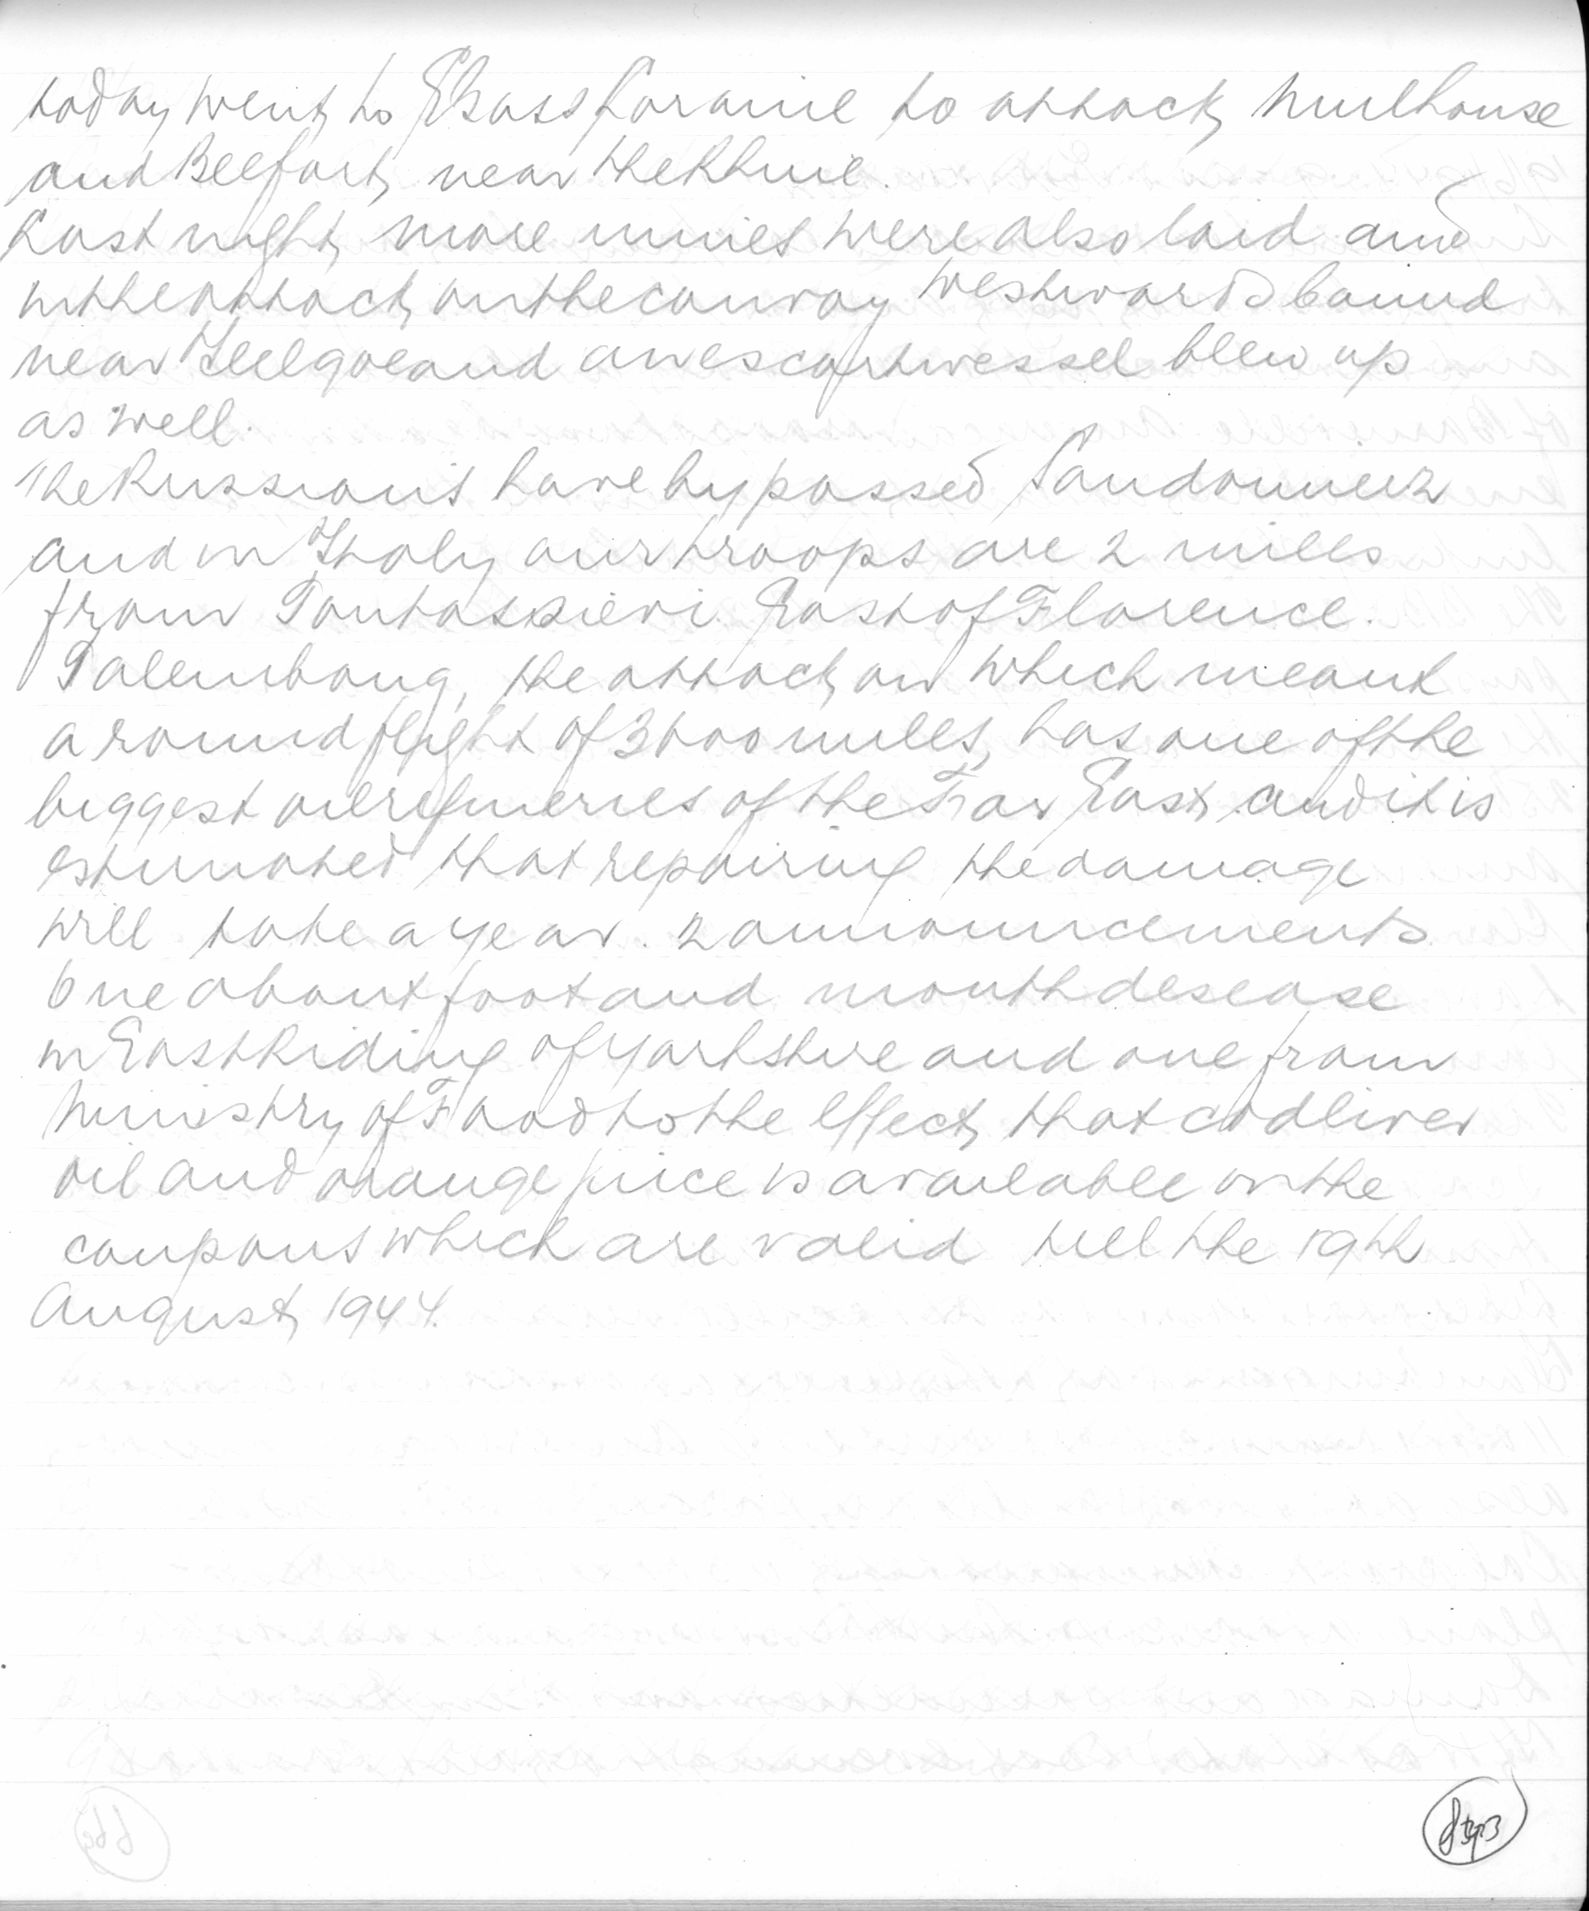 today went to Elsass Loraine to attack Mulhouse
and Belfort near the Rhine.
Last night more mines were also laid and
in the attack on the convoy westwards bound
near Helgoland an escort vessel blew up
as well.
The Russians have bypassed Sandomierz
and in Italy our troops are 2 miles
from Pontassieri East of Florence.
Palembang, the attack on which meant
a round flight of 3000 miles, has one of the
biggest oil refineries of the Far East and it is
estimated that repairing the damage
will take a year. 2 announcements
One about foot and mouth desease
in East Riding of Yorkshire and one from
Ministry of Food to the effect that codliver
oil and orange juice is available on the
coupons which are valid till the 19th
August 1944.